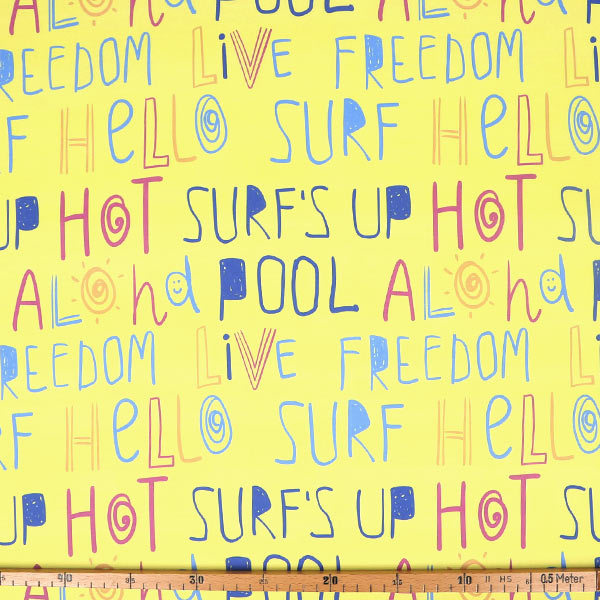 ALOHA POOL ALOHA
FREEDOM LiVE FREEDOM Li
F HeLLO SURF HeLLO
UP HOT SURF'S UP HOT SU
ALOha POOL ALOha
REEDOM LiVE FREEDOM Li
RF HeLLO SURF HeLLO
UP HOT SURF'S UP HOT SU
POOL
40 30 20 10 0.5 Meter